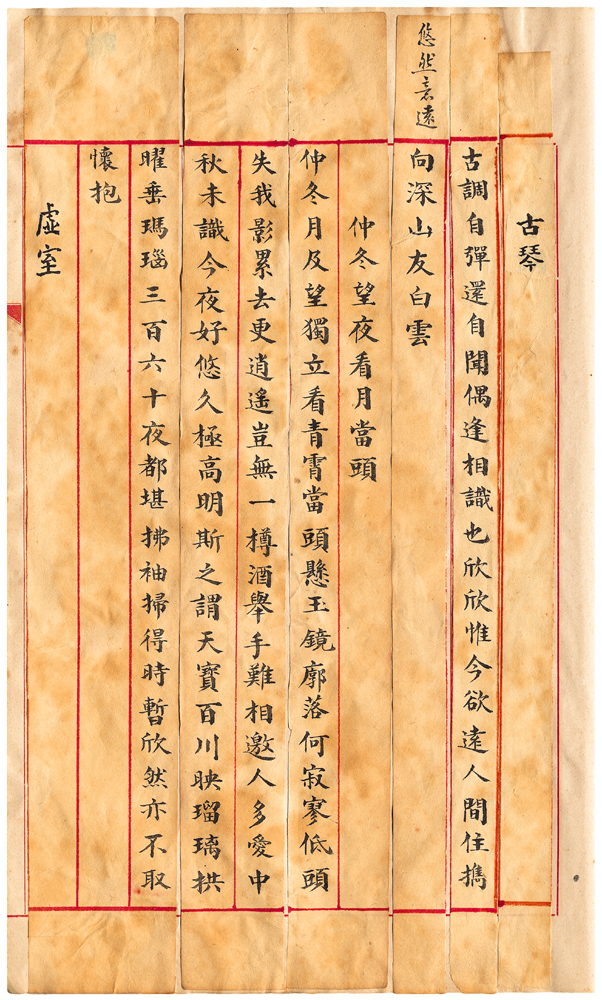 悠然意遠
古琴
古調自彈還自聞偶逢相識也欣欣惟今欲遠人間住攜
向深山友白雲
仲冬望夜看月當頭
仲冬月及望獨立看青霄當頭懸玉鏡廓落何寂寥低頭
失我影累去更逍遙豈無一樽酒舉手難相邀人多愛中
秋未識今夜好悠久極高明斯之謂天寶百川映瑠璃栱
曜垂瑪瑙三百六十夜都堪拂袖掃得時暫欣然亦不取
懷抱
虛室